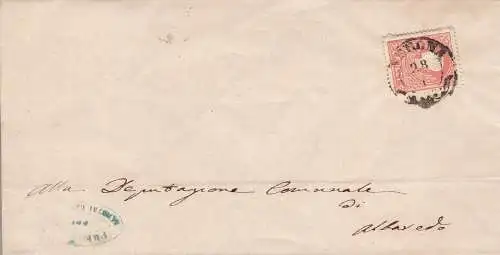 VERONA
28
alla Deputazione Comunale
di
Albaredo